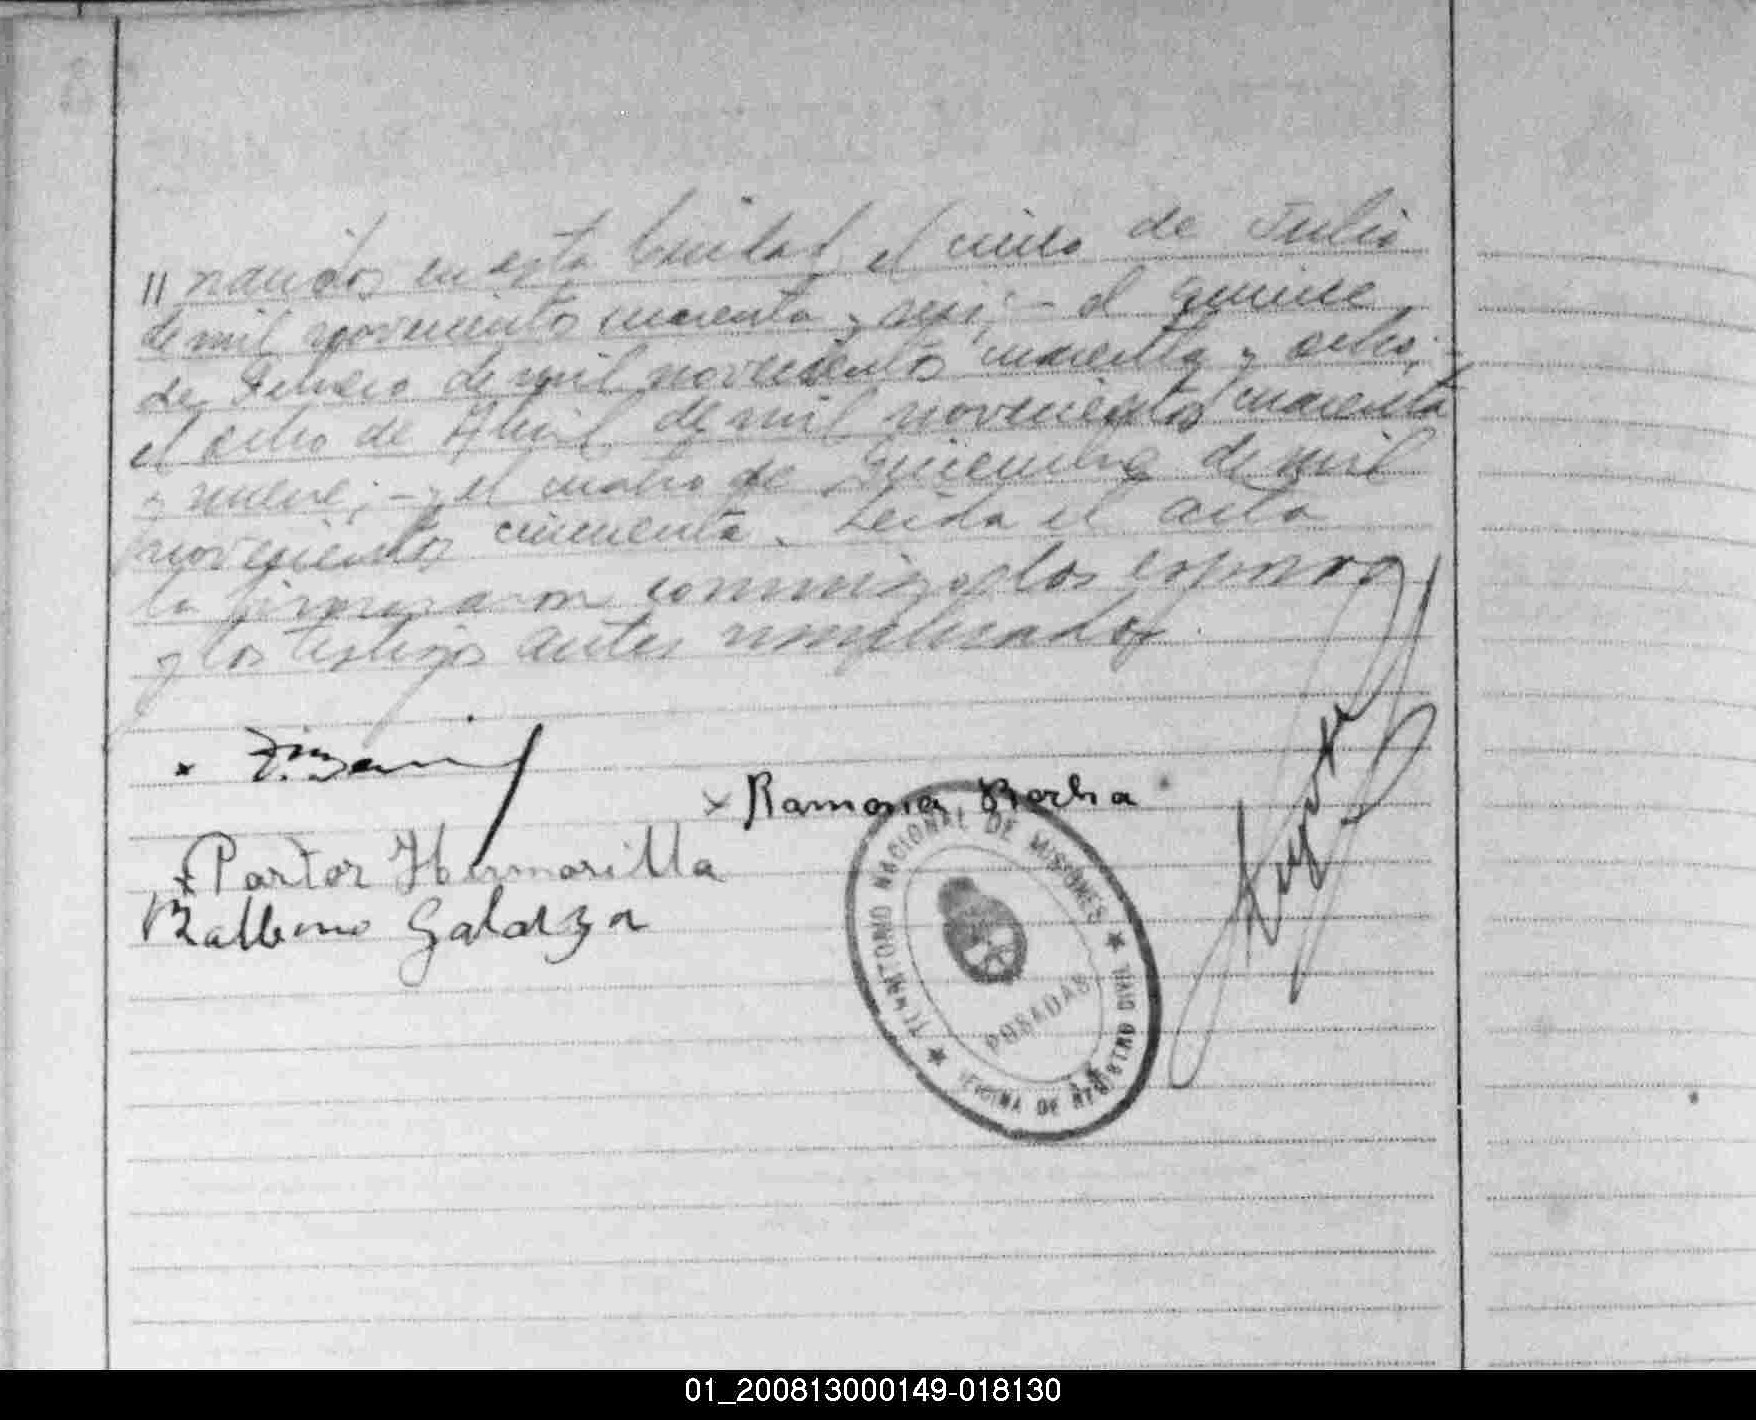 // nacidos en esta Ciudad el cinco de Julio
de mil novecientos cuarenta y seis; - el quince
de Febrero de mil novecientos cuarenta y ocho; -
el ocho de Abril de mil novecientos cuarenta
y nueve; - y el cuatro de Diciembre de mil
novecientos cincuenta. Leida el acta
la firmaron conmigo los esposos
y los testigos antes nombrados.
x
x Ramona Rocha
x Pastor Hermosilla
Balbino Galarza
TERRITORIO NACIONAL DE MISIONES
POSADAS
OFICINA DE REGISTRO CIVIL
01_200813000149-018130